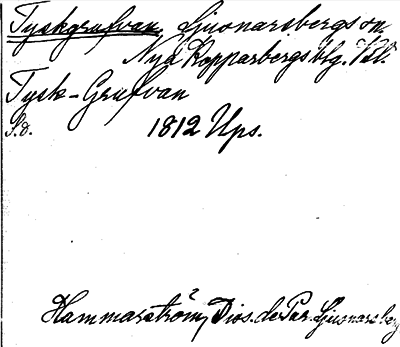 Tyskgrufvan, Ljusnarsbergs sn,
Nya Kopparbergs blg. Vstl.
Tysk-Grufvan
S.d. 1812 Ups.
Hammarström, Diss. de Par. Ljusnarsberg